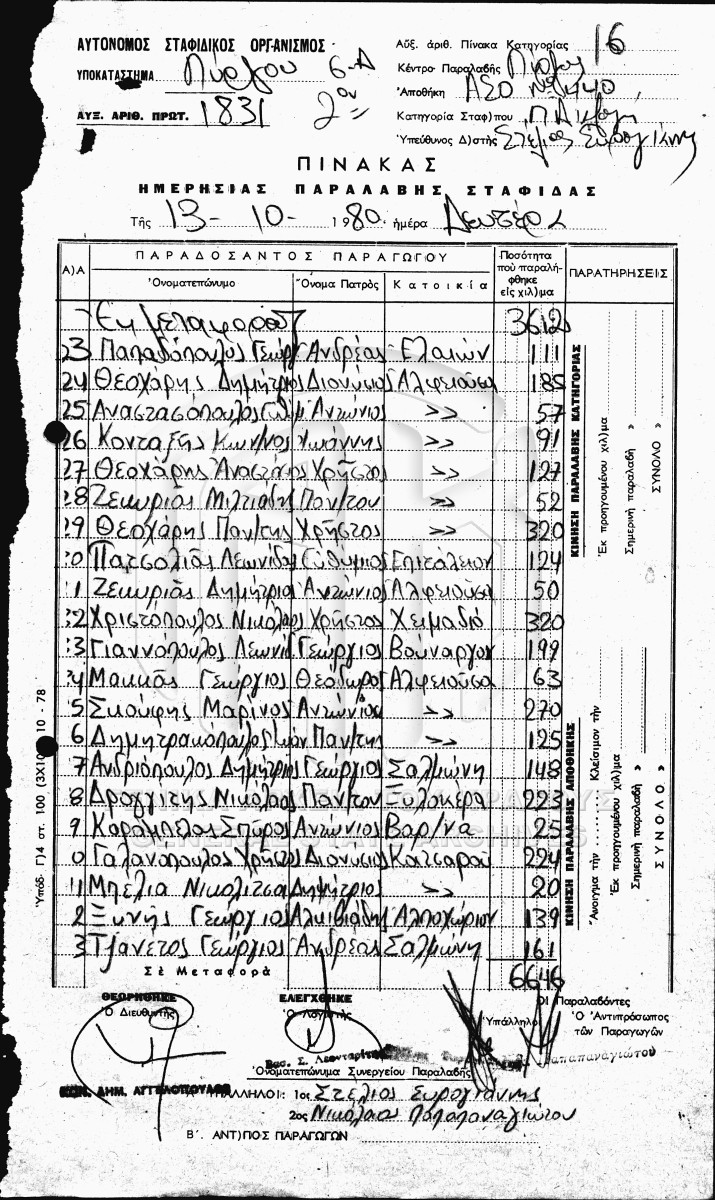 ΑΥΤΟΝΟΜΟΣ ΣΤΑΦΙΔΙΚΟΣ ΟΡΓΑΝΙΣΜΟΣ
ΥΠΟΚΑΤΑΣΤΗΜΑ Πύργου 6-Α
ΑΥΞ. ΑΡΙΘ. ΠΡΩΤ. 1831 2ον
Αὔξ. ἀριθ. Πίνακα Κατηγορίας 16
Κέντρο Παραλαβῆς Πύργος
Ἀποθήκη ΑΣΟ Νο 1440
Κατηγορία Σταφ)που
Ὑπεύθυνος Δ)στής Στέλιος
ΠΙΝΑΚΑΣ
ΗΜΕΡΗΣΙΑΣ ΠΑΡΑΛΑΒΗΣ ΣΤΑΦΙΔΑΣ
Τῆς 13-10-1980 ἡμέρα Δευτέρα
Α)Α ΠΑΡΑΔΟΣΑΝΤΟΣ ΠΑΡΑΓΩΓΟΥ Ποσότητα ποὺ παραλήφθηκε εἰς χιλ)μα ΠΑΡΑΤΗΡΗΣΕΙΣ
Ὀνοματεπώνυμο Ὄνομα Πατρὸς Κατοικία
Ἐκ μεταφορᾶς 3612
23 Παπαδόπουλος Γεώργ Ἀνδρέας Ελαιών 111
24 Θεοχάρης Δημήτριος Διονύσιος Αλφειούσα 185
25 Αναστασόπουλος Ἀντώνιος >> 57
26 Κονταξῆς Κων/νος Ἰωάννης >> 91
27 Θεοχάρης Αναστάσιος Χρῆστος >> 127
28 Ζευυριᾶς Μιλτιάδης Παν/του >> 52
29 Θεοχάρης Παν/της Χρῆστος >> 320
30 Πατσολιᾶς Λεωνίδας Εὐθύμιος Επιτάλειον 124
1 Ζευυριᾶς Δημήτριος Ἀντώνιος Αλφειούσα 50
32 Χριστόπουλος Νικόλαος Χρῆστος Χειμαδιό 320
33 Γιαννόπουλος Λεωνιδ Γεώργιος Βούναργου 199
34 Μακκᾶς Γεώργιος Θεόδωρος Αλφειούσα 63
5 Σκούφης Μαρίνος Ἀντωνίου >> 270
6 Δημητρακόπουλος Ἰωάν Παν/της >> 125
7 Ανδριόπουλος Δημήτριος Γεώργιος Σαλμώνη 148
8 Δρογγίτης Νικόλαος Παν/του Ξυλοκέρα 223
9 Καράμπελος Σπύρος Ἀντώνιος Βαρ/να 25
0 Γαλανόπουλος Χρῆστος Διονύσιος Κατσαρού 224
11 Μπέλια Νικολίτσα Δημήτριος >> 20
2 Ξυνῆς Γεώργιος Αλκιβιάδης Αλποχώριον 139
3 Τζανέτος Γεώργιος Ἀνδρέας Σαλμώνη 161
Σὲ Μεταφορὰ 6646
ΚΙΝΗΣΗ ΠΑΡΑΛΑΒΗΣ ΚΑΤΗΓΟΡΙΑΣ
Ἐκ προηγουμένου χιλ)μα
Σημερινὴ παραλαβὴ »
ΣΥΝΟΛΟ »
ΚΙΝΗΣΗ ΠΑΡΑΛΑΒΗΣ ΑΠΟΘΗΚΗΣ
Ἄνοιγμα τὴν Κλείσιμον τὴν
Ἐκ προηγουμένου χιλ)μα
Σημερινὴ παραλαβὴ »
ΣΥΝΟΛΟ »
Ὑπόδ. Γ)4 στ. 100 (3Χ100) 10-78
GENERAL STATE ARCHIVES
ΘΕΩΡΗΘΗΚΕ
Ὁ Διευθυντὴς
ΕΛΕΓΧΘΗΚΕ
Ὁ Λογιστὴς
Οἱ Παραλαβόντες
Ὑπάλληλοι Ὁ Ἀντιπρόσωπος τῶν Παραγωγῶν
Βασ. Σ. Λεονταρίτης
Παπαπαναγιώτου
Ὀνοματεπώνυμα Συνεργείου Παραλαβῆς
ΚΩΝ. ΔΗΜ. ΑΓΓΕΛΟΠΟΥΛΟΣ
ΥΠΑΛΛΗΛΟΙ: 1ος Στέλιος
2ος Νικόλαος Παπαπαναγιώτου
Β΄. ΑΝΤ)ΠΟΣ ΠΑΡΑΓΩΓΩΝ